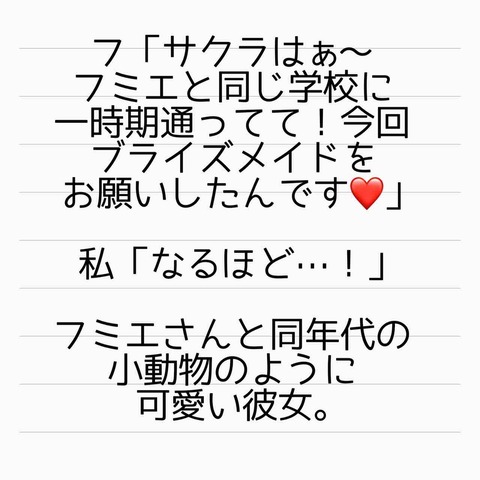 フ「サクラはぁ〜
フミエと同じ学校に
一時期通ってて！今回
ブライズメイドを
お願いしたんです❤️」
私「なるほど…！」
フミエさんと同年代の
小動物のように
可愛い彼女。